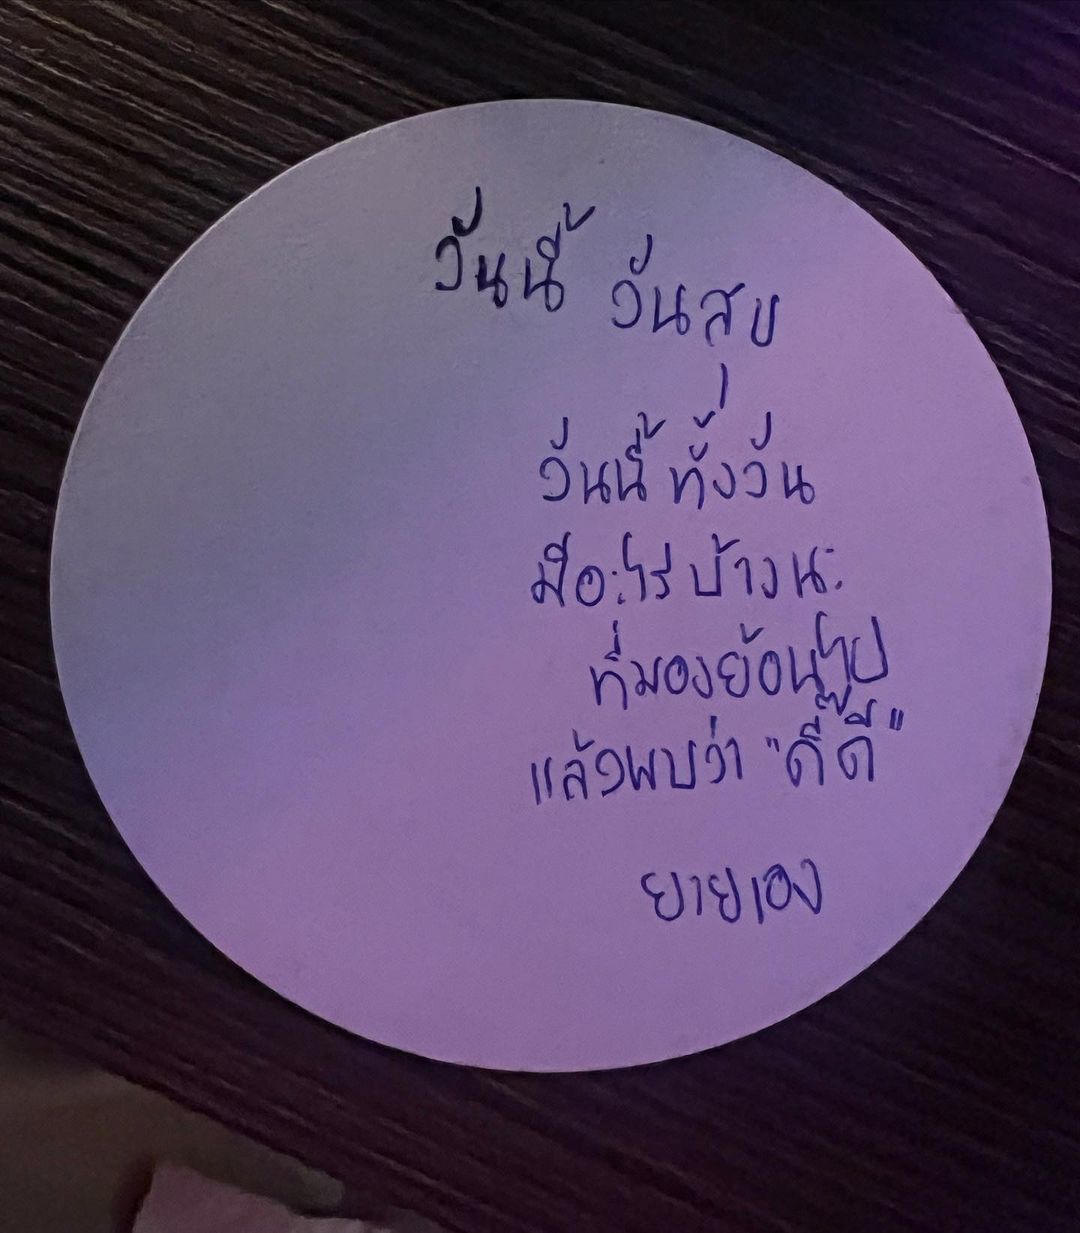 วันนี้ วันสุข
วันนี้ ทั้งวัน
มีอะไร บ้างนะ
ที่มองย้อนไป
แล้วพบว่า "ดี๊ดี"
ยายเอง